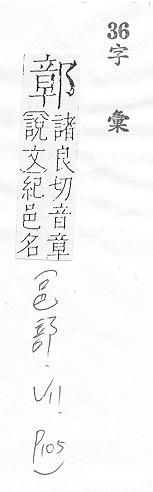 36字彙
鄣諸良切音章
〔說文〕紀邑名
(邑部.VII.P105)